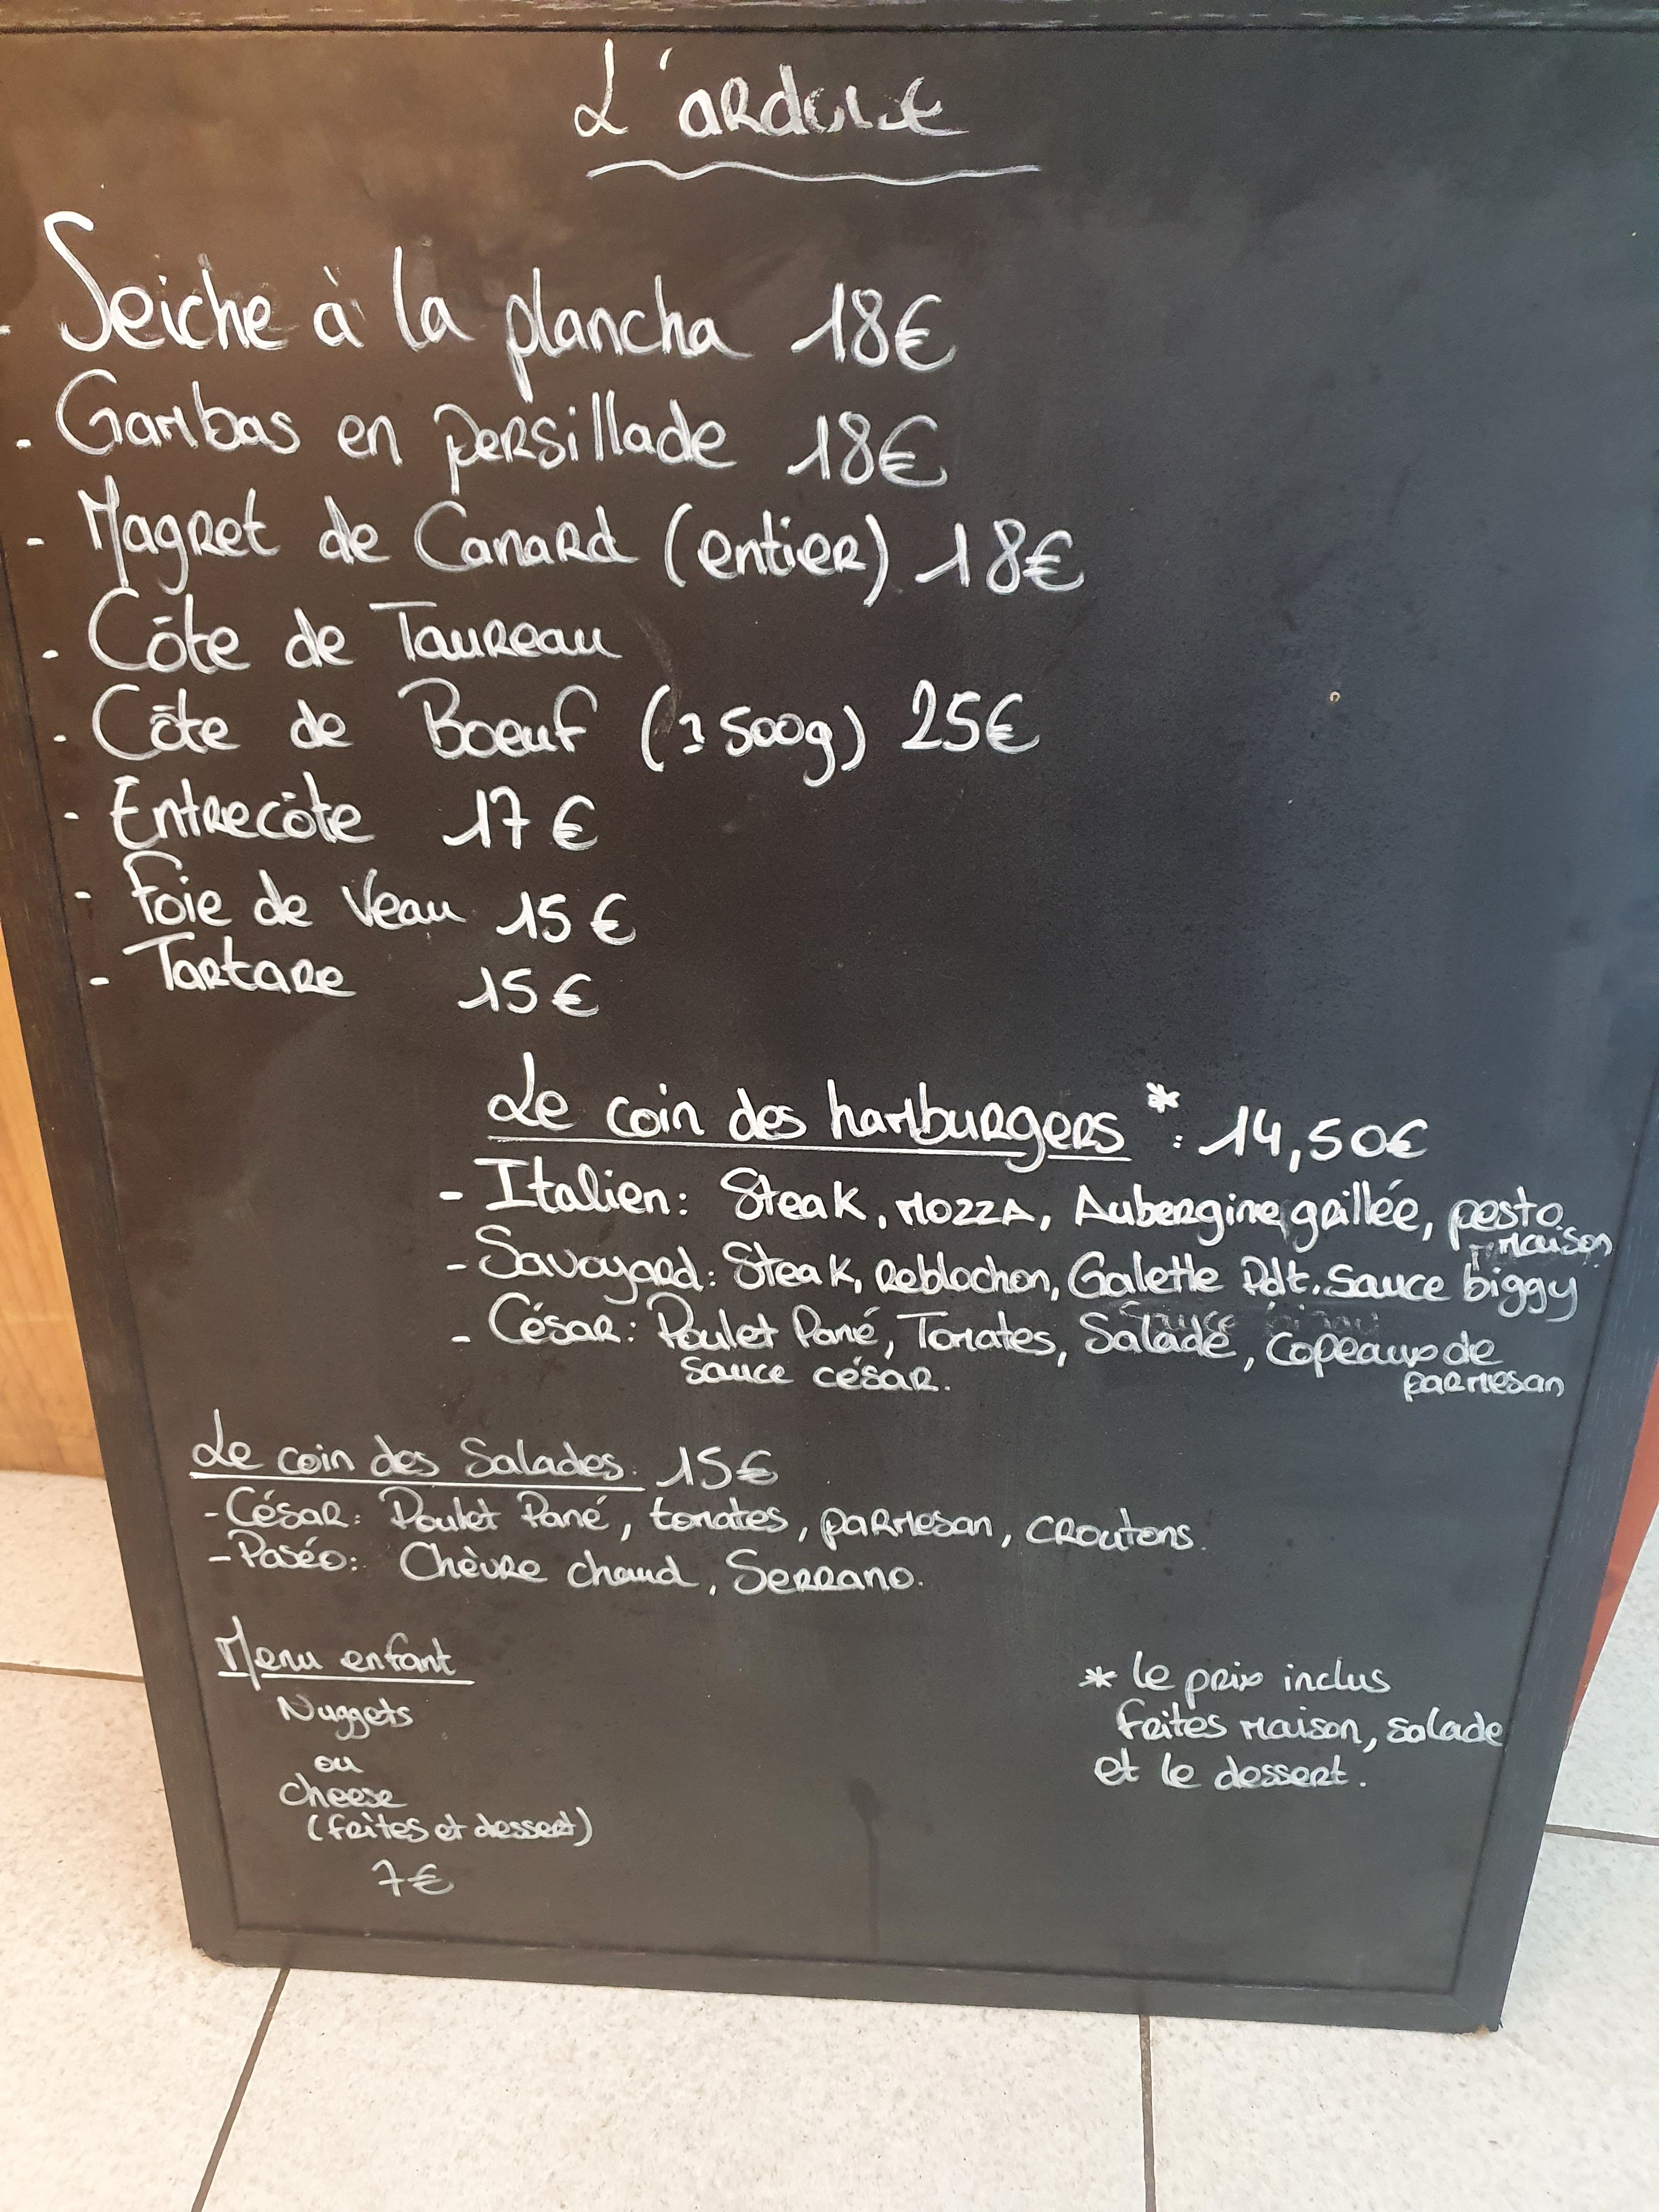 L'ardoise
- Seiche à la plancha 18€
- Gambas en persillade 18€
- Magret de Canard (entier) 18€
- Côte de Taureau
- Côte de Boeuf (500g) 25€
- Entrecôte 17€
- Foie de Veau 15€
- Tartare 15€
Le coin des hamburgers * : 14,50€
- Italien: Steak, Mozza, Aubergine grillée, pesto
maison
- Savoyard: Steak, Reblochon, Galette Pdt. Sauce biggy
- César: Poulet Pané, Tomates, Salade, copeaux de
parmesan
sauce césar.
Le coin des Salades: 15€
- César: Poulet Pané, tomates, parmesan, croutons.
- Paséo: Chèvre chaud, Serrano.
Menu enfant
Nuggets
ou
cheese
(frites et dessert)
7€
* le prix inclus
frites maison, salade
et le dessert.